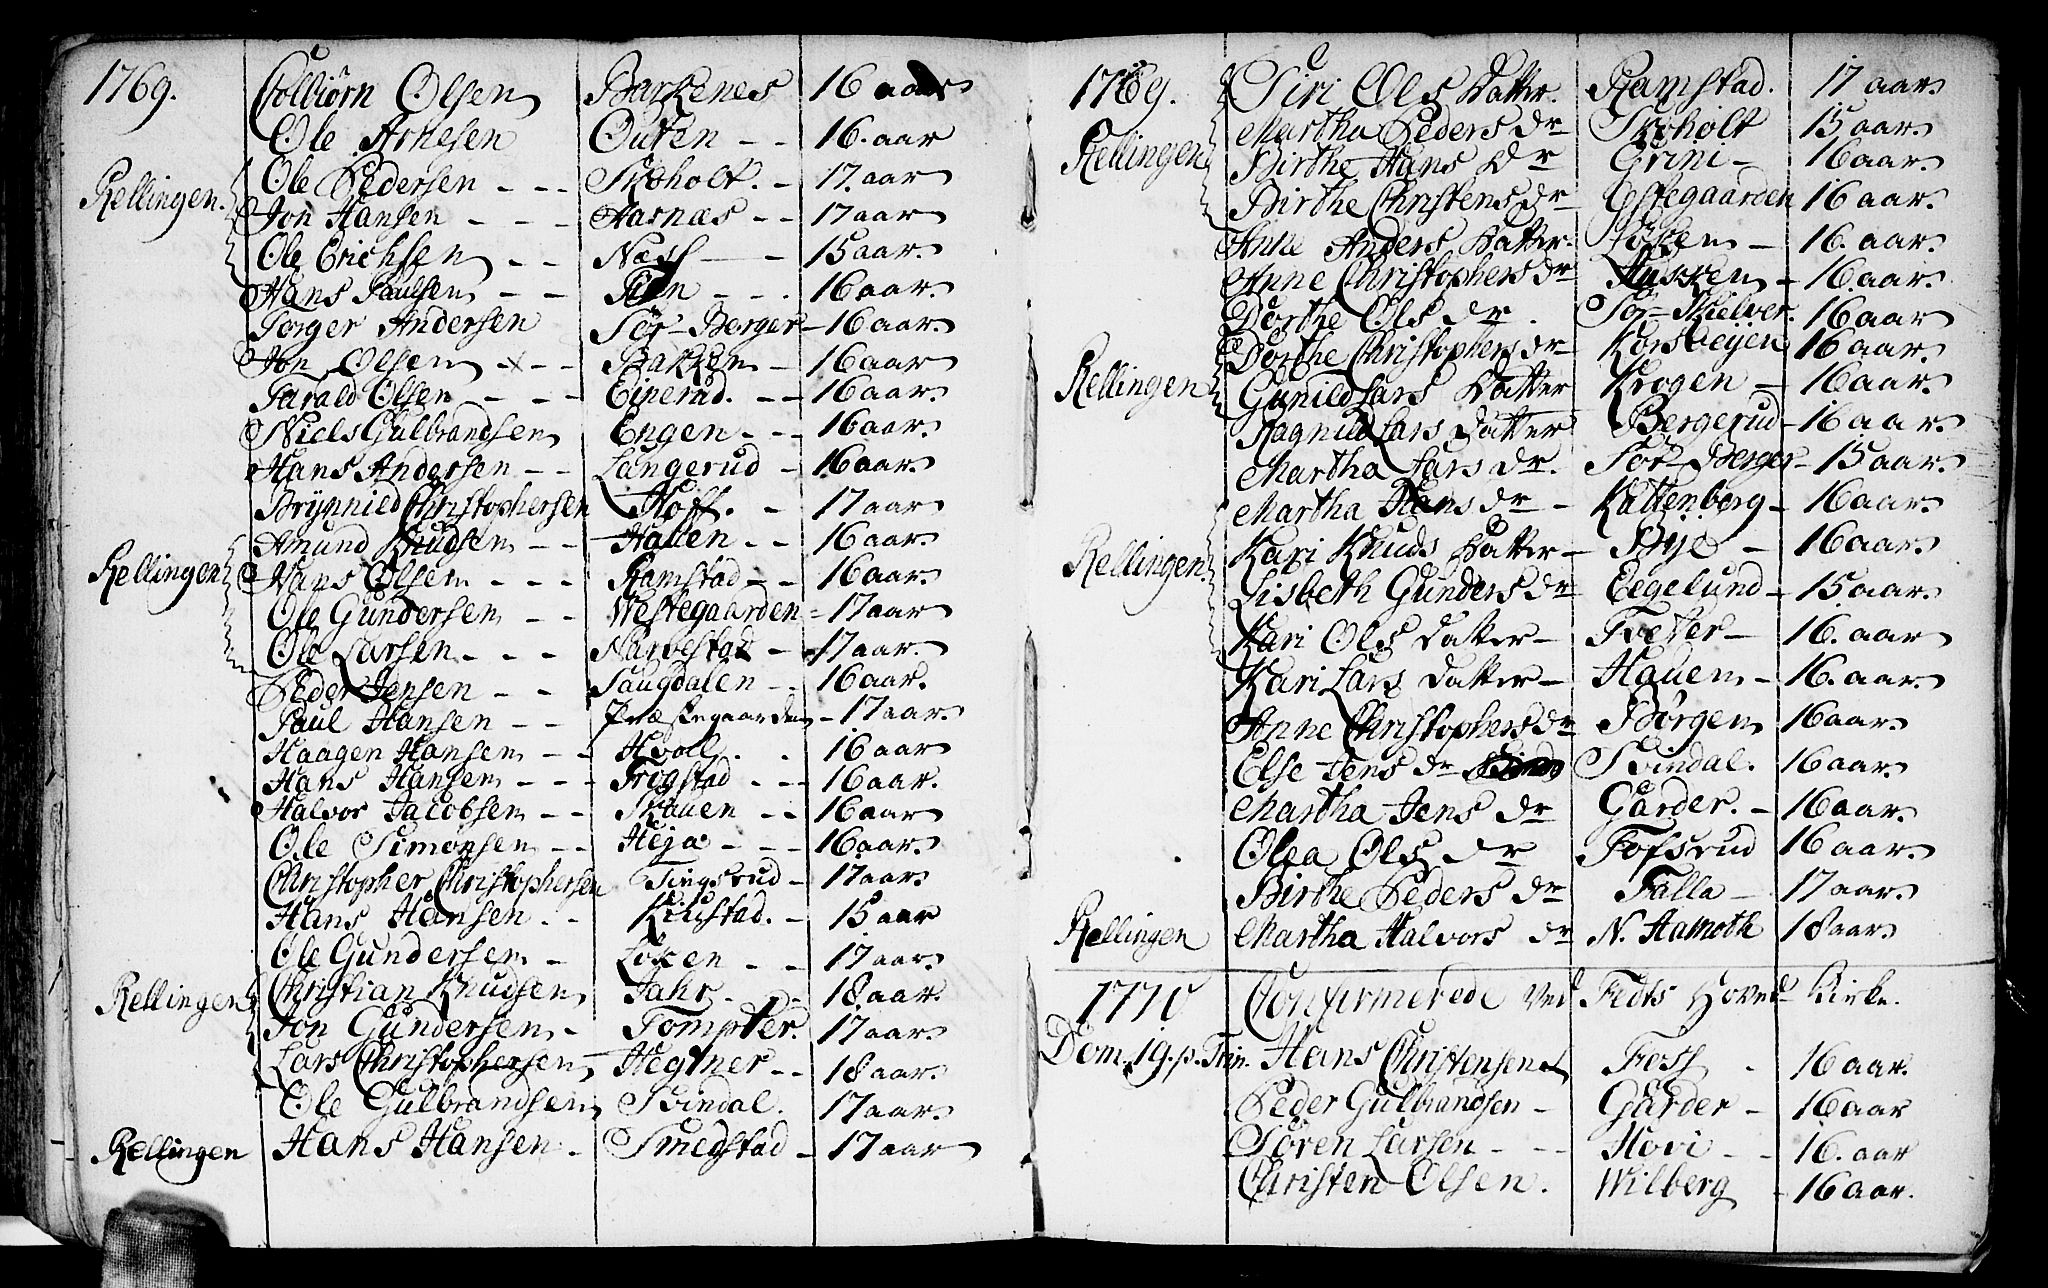 1769. Colbiörn Olsen Barkenes 16 aar
Ole Arnesen Outen - - 16. aar
Rellingen. Ole Pedersen - - - Skoholt. - 17. aar
Jon Hansen - - - Harnæs - - 17 aar
Ole Erichsen - - Næss - - 15 aar.
Hans Paulsen - - - - . 16 aar.
Torger Andersen Sör-Berger - 16 aar.
Jon Olsen - x - - Bakken - 16 aar
Harald Olsen - - - Einerud. - - 16 aar.
Niels Gulbrandsen Engen - - - 16 aar.
Hans Andersen - - Langerud - 16 aar.
Brynnild Christophersen Hoff. - 17 aar
Amund Knudsen - - Hauen - - 16 aar.
Rellingen Hans Olsen - - - Ramstad - - 16 aar.
Ole Gundersen - - Westegaarden - 17 aar
Ole Larsen - - - Narvestad - 17 aar.
Peder Jensen - - Saugdalen - 16 aar.
Paul Hansen - - Præstegaarden - 17 aar.
Haagen Hansen - - Hvoll . . 16 aar
Hans Hansen - - - Trögstad - - 16 aar.
Halvor Jacobsen - - Skauen - - 16 aar
Ole Simonsen - - Heja - - - 16 aar.
Christopher Christophersen Tingsrud - 17 aar.
Hans Hansen - - Kiilstad. - 15 aar
Ole Gundersen - Löken - - 17 aar.
Rellingen Christian Knudsen Fahr - - 18 aar.
Jon Gundersen - Tompter. 17 aar.
Lars Christophersen Hegtner - - 18 aar.
Ole Gulbrandsen Svindal. 17 aar.
Rellingen Hans Hansen - Smedstad - 17 aar
1769. Siri Ols Datter. Ramstad. 17 aar.
Martha Peders dr Skoholt 15 aar.
Rellingen Birthe Hans Dr Grini - 16 aar.
Birthe Christens dr Østegaarden 16 aar.
Anne Anders Datter - Löken - 16. aar.
Anne Christophers dr - 16 aar.
Dorthe Ols dr . Sör-Skielver. 16 aar
Dorthe Christophers dr Korsveijen 16 aar.
Rellingen Gunild Lars Datter Krogen - 16 aar.
Ragnild Lars Datter Bergerud - 16 aar.
Martha Lars dr. Sör-Berger - 15 aar.
Martha Hans dr - Kattenberg - 16 aar.
Rellingen. Kari Knuds Datter - Bye - 16 aar.
Lisbeth Gunders dr Eegelund - 15 aar.
Kari Ols Datter - Tveter - 16. aar
Kari Lars Datter - Hauen - 16. aar.
Anne Christophers dr Börgen 16 aar.
Else Jens dr Svindal. 16 aar.
Martha Jens dr Garder. - 16 aar.
Olea Ols dr Fossrud 16 aar.
Birthe Peders dr Falla - 17 aar.
Rellingen Martha Halvors dr N. Hamoth 18 aar.
1770 Confirmerede ved Fedts Hoved Kirke.
Dom. 19. p. Trin. Hans Christensen Foss . 16 aar.
Peder Gulbrandsen - Garder - 16 aar
Sören Larsen - - - Hovi - - 16. aar
Christen Olsen. Wilberg - 16 aar.